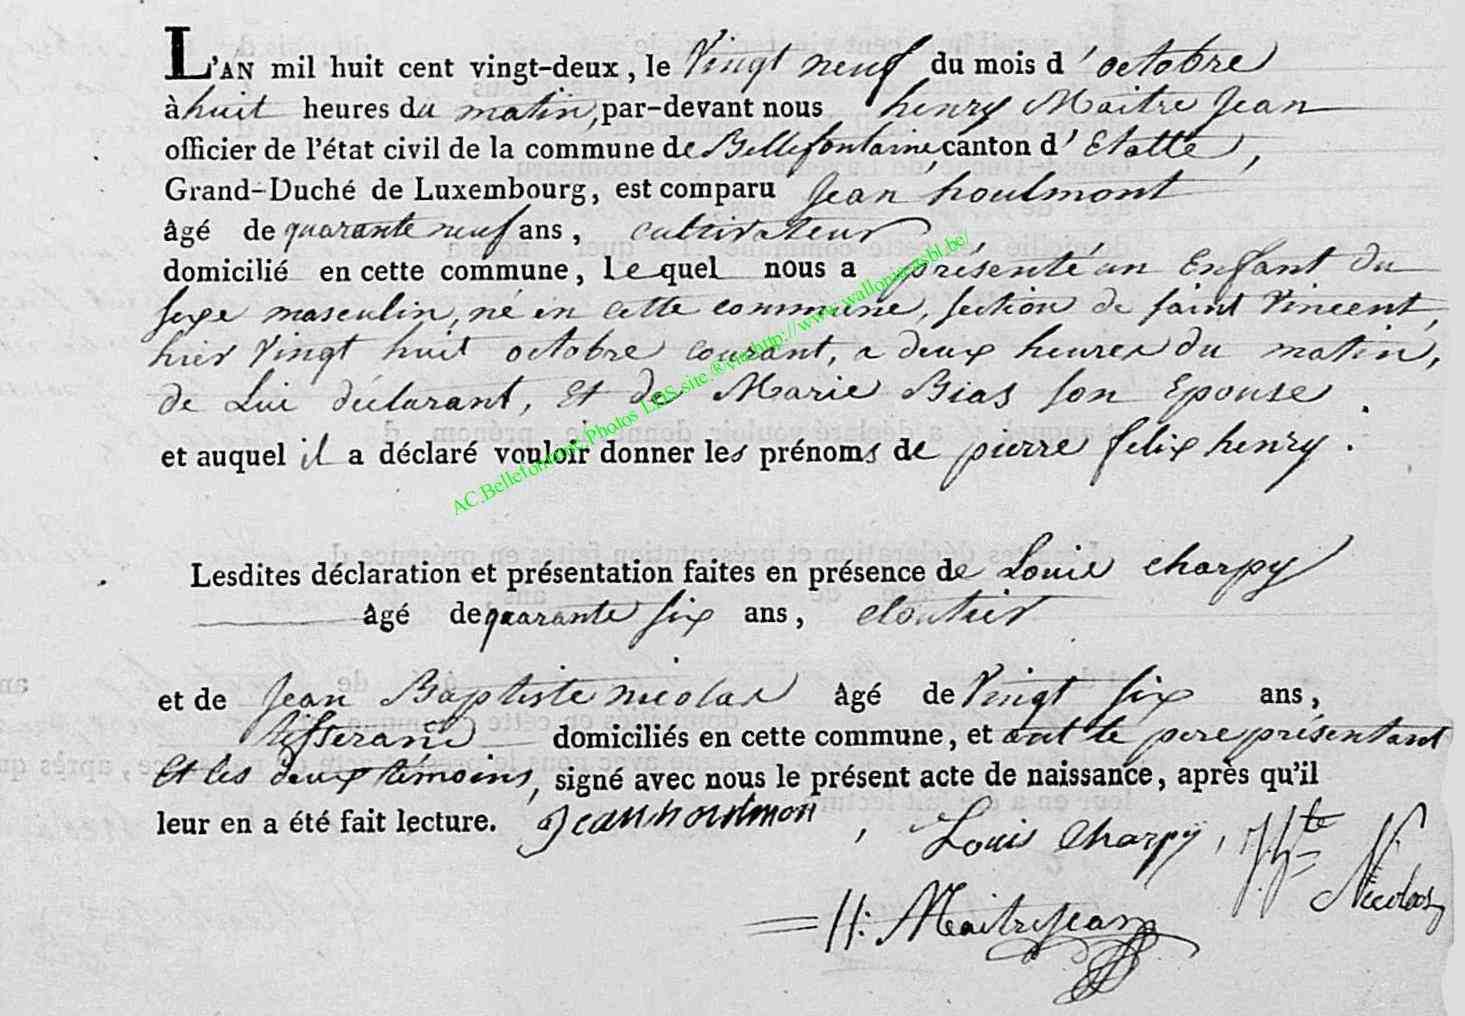 L'AN mil huit cent vingt-deux, le Vingt neuf du mois d'octobre
à huit heures du matin, par-devant nous henry Maitre Jean
officier de l'état civil de la commune de Bellefontaine, canton d'Etatte,
Grand-Duché de Luxembourg, est comparu Jean houlmont
âgé de quarante neuf ans, cultivateur
domicilié en cette commune, lequel nous a présenté un Enfant du
sexe masculin, né en cette commune, section de saint Vincent,
hier Vingt huit octobre courant, a deux heures du matin,
de Lui déclarant, Et de Marie Bias son Epouse.
et auquel il a déclaré vouloir donner les prénoms de pierre felix henry.
AC.Bellefontaine Photos LDS site ®via:http://www.walloniaasbl.be/
Lesdites déclaration et présentation faites en présence de Louis Charpy
âgé de quarante six ans, cloutier
et de Jean Baptiste nicolas âgé de Vingt six ans,
tisserand domiciliés en cette commune, et ont le pere présentant
Et les deux témoins, signé avec nous le présent acte de naissance, après qu'il
leur en a été fait lecture. Jean houlmon
, Louis Charpy, J. Bte Nicolas
H: MaitreJean